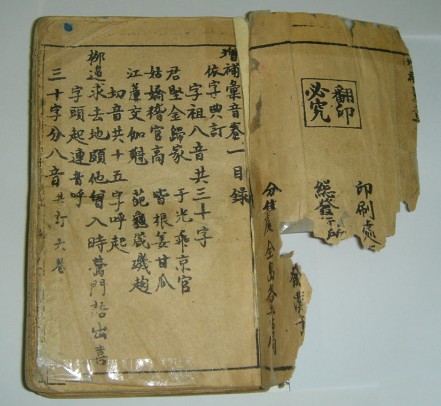 印刷處
總發行所
翻印
必究
增補彙音卷一目錄
依字典訂
字祖八音共三十字
君堅金歸家 于光乖京官
姑嬌稽官高 皆根姜甘瓜
江蘆交伽魁 葩龜箴璣趄
切音共十五字呼起
柳邊求去地頗他曾入時鶯門語出喜
字頭起連音呼
三十字分八音共訂六卷